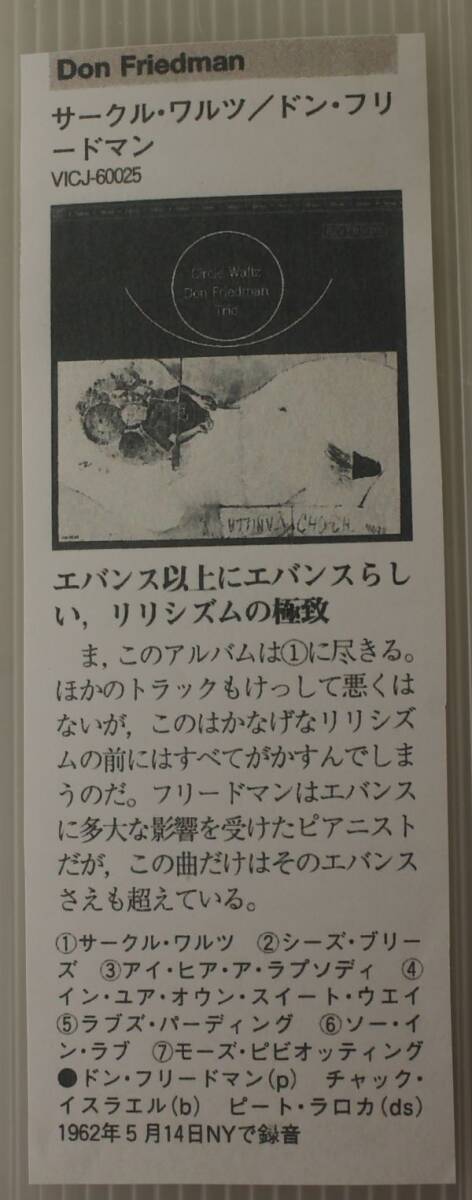 Don Friedman
サークル・ワルツ／ドン・フリ
ードマン
VICJ-60025
Circle Waltz
Don Friedman
Trio
エバンス以上にエバンスらし
い，リリシズムの極致
ま，このアルバムは①に尽きる。
ほかのトラックもけっして悪くは
ないが，このはかなげなリリシズ
ムの前にはすべてがかすんでしま
うのだ。フリードマンはエバンス
に多大な影響を受けたピアニスト
だが，この曲だけはそのエバンス
さえも超えている。
①サークル・ワルツ ②シーズ・ブリー
ズ ③アイ・ヒア・ア・ラプソディ ④
イン・ユア・オウン・スイート・ウエイ
⑤ラブズ・パーディング ⑥ソー・イ
ン・ラブ ⑦モーズ・ピビオッティング
●ドン・フリードマン(p) チャック・
イスラエル(b) ピート・ラロカ(ds)
1962年5月14日NYで録音